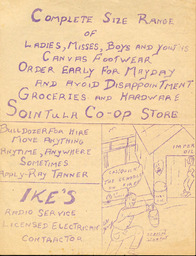 COMPLETE SIZE RANGE
OF
LADIES, MISSES, BOYS AND YOUTHS
CANVAS FOOTWEAR
ORDER EARLY FOR MAYDAY
AND AVOID DISAPPOINTMENT
GROCERIES AND HARDWARE
SOINTULA CO-OP STORE
BULLDOZER FOR HIRE
MOVE ANYTHING
ANYTIME, ANYWHERE
SOMETIMES
APPLY-RAY TANNER
IKE'S
RADIO SERVICE
LICENSED ELECTRICAL
CONTRACTOR
IMPERIAL
OIL